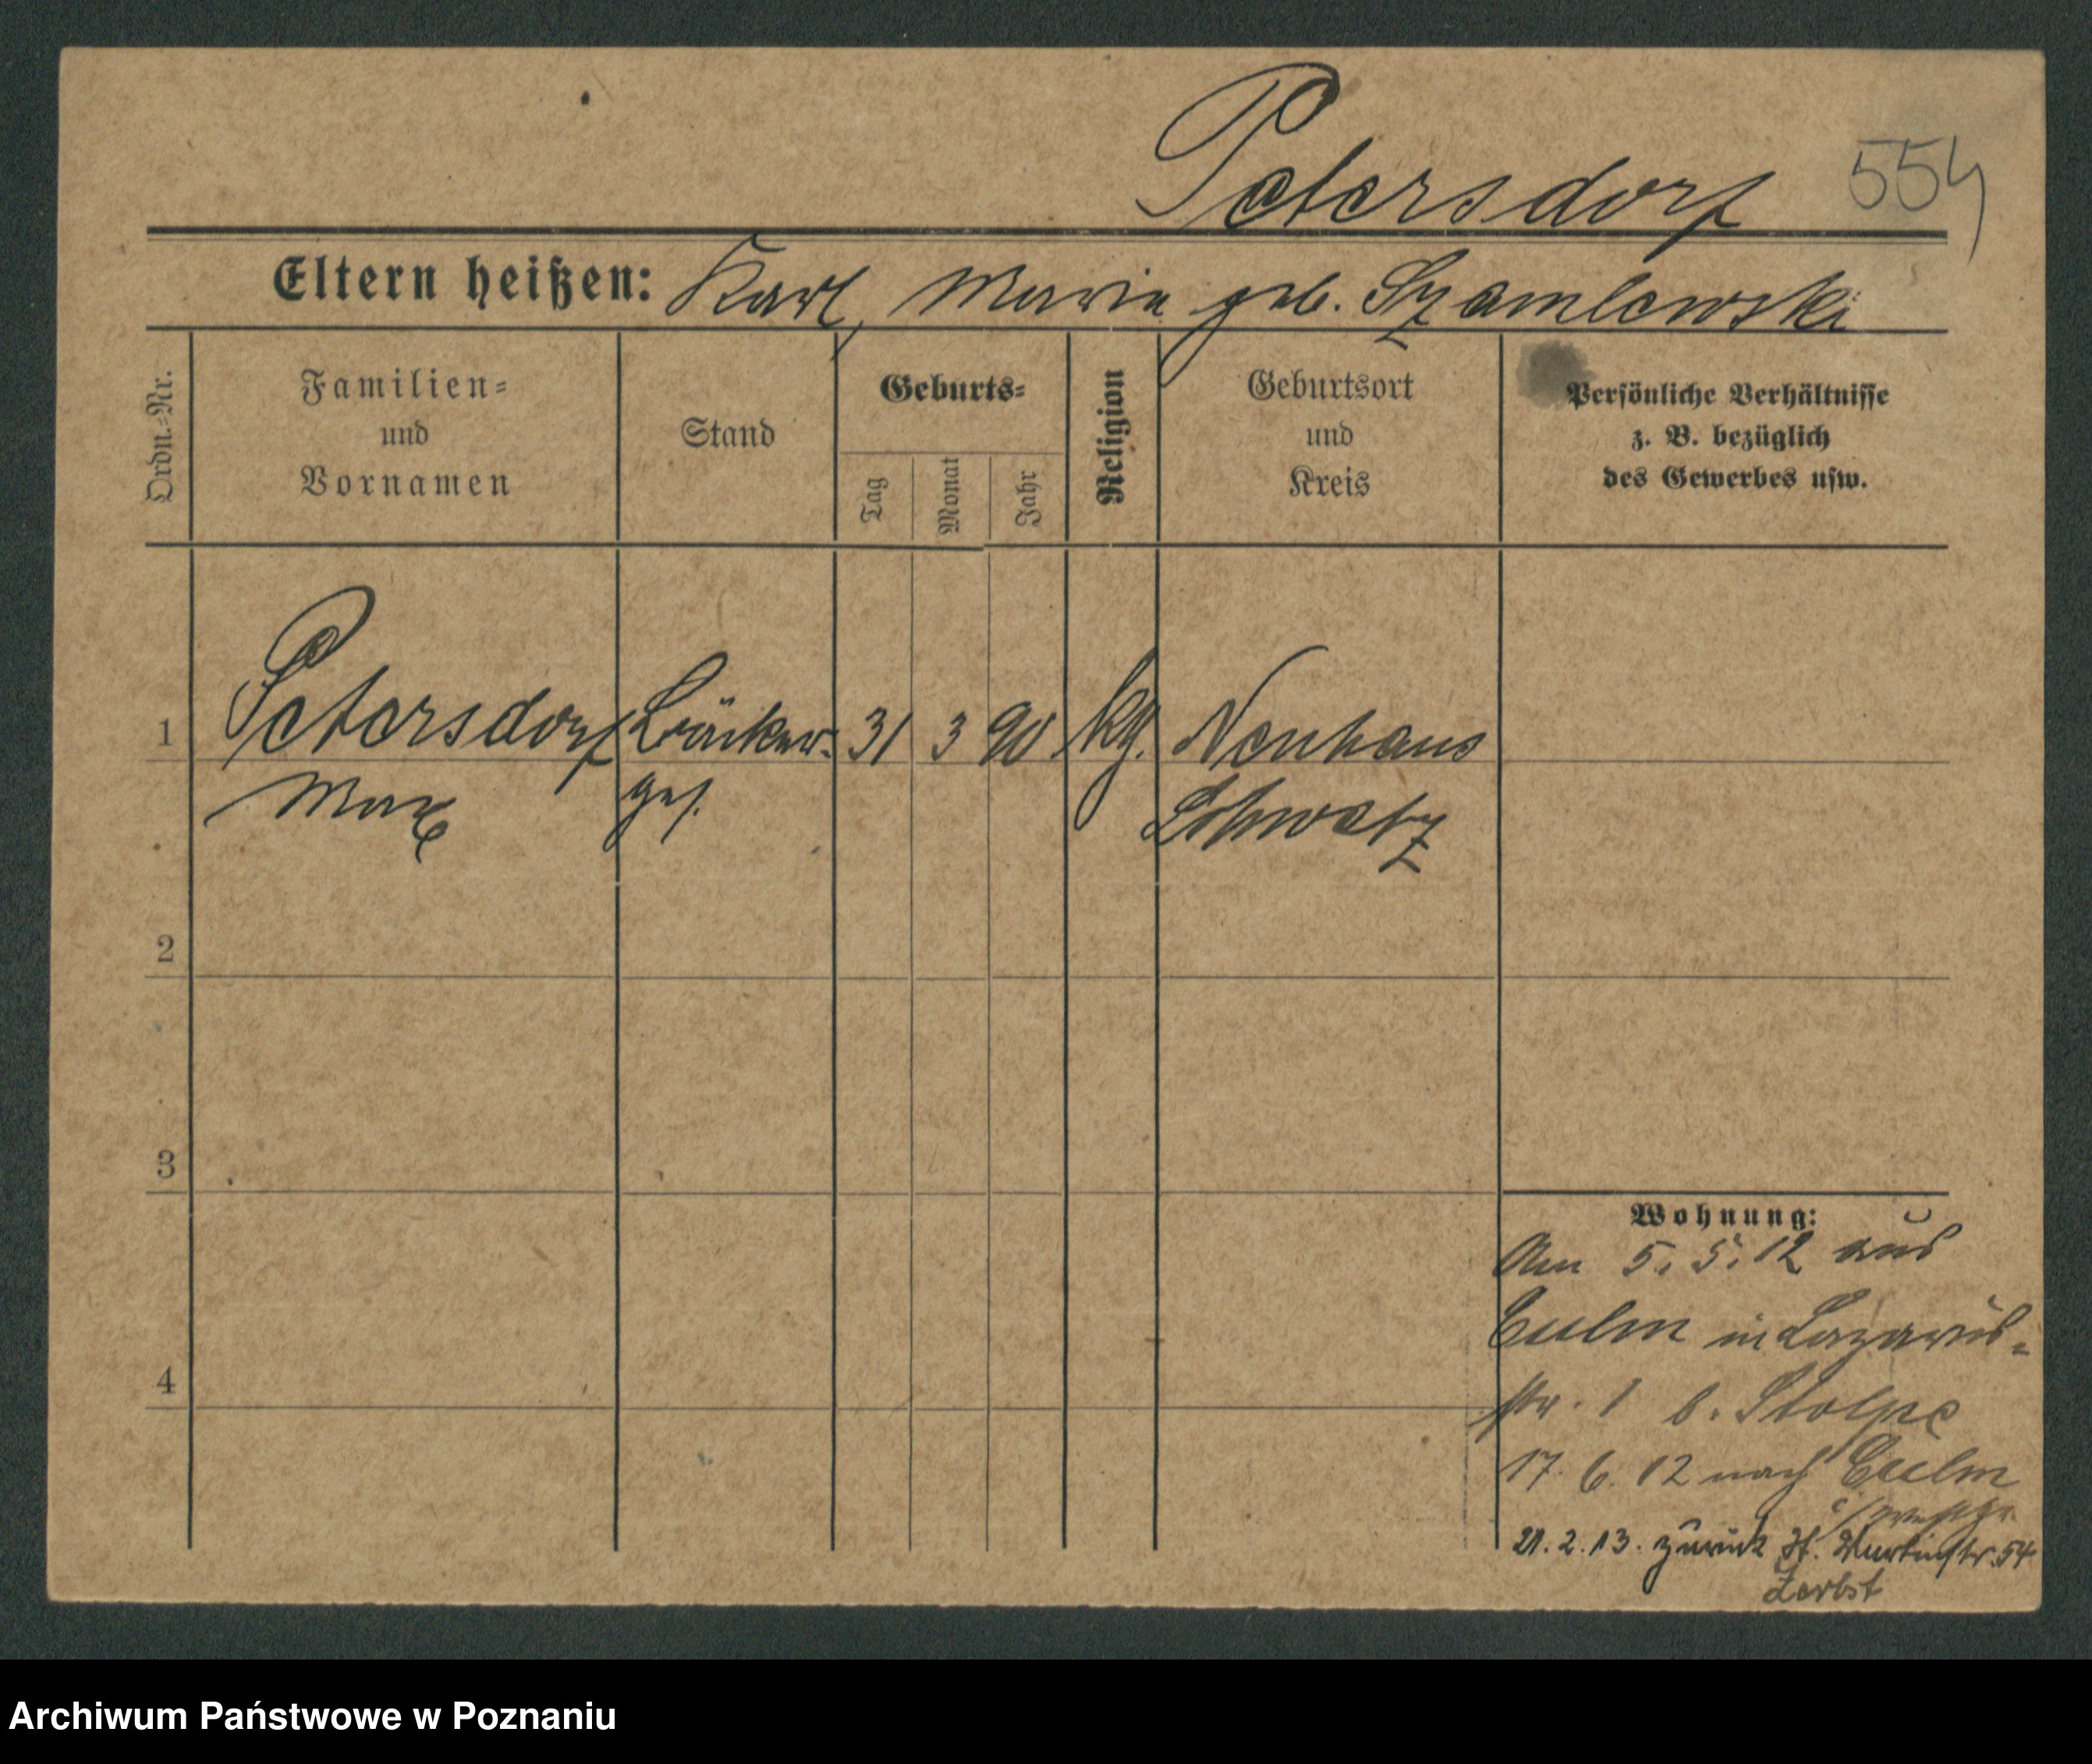 Petersdorf 554
Eltern heißen: Karl, Marie geb. Szamlewski
Ordn.-Nr.
Familien-
und
Vornamen
Stand
Geburts-
Tag
Monat
Jahr
Religion
Geburtsort
und
Kreis
Persönliche Verhältnisse
z. B. bezüglich
des Gewerbes usw.
1 Petersdorf Bäcker- 31 3 90 kg. Neuhaus
Max ges. Schwetz
2
3
4
Wohnung:
Am 5. 5. 12 aus
Culm in Lazarus-
str. 1 b. Stolpe
17. 6. 12 nach Culm
21. 2. 13. zurück St. Martinstr. 54
Zerbst
Archiwum Państwowe w Poznaniu